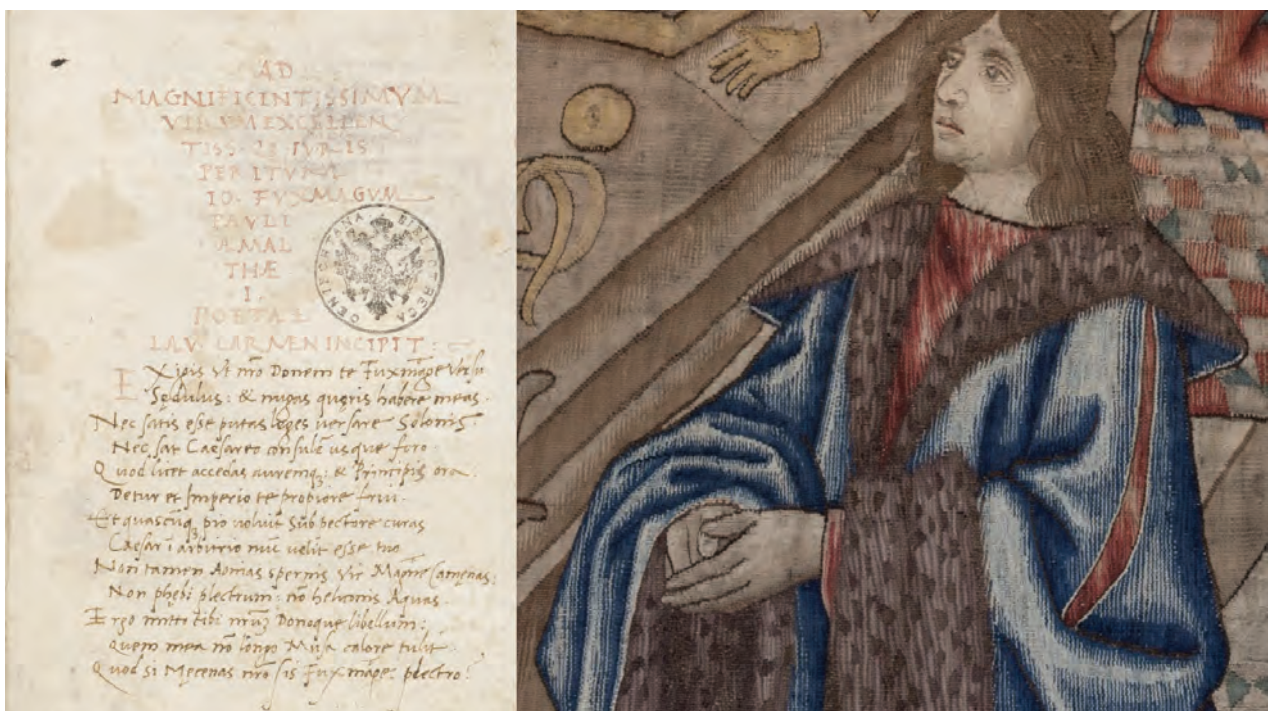 AD
MAGNIFICENTISSIMVM
VIRVM EXCELLEN
TISS · IVRIS
PERITVM
IO. FVXMAGVM
PAVLI
AMAL
THÆ
I.
POETAE
LAV CARMEN INCIPIT:
EXipis vt nro Donem te Fuxmage
Sędulus: & nugas quęris habere meas.
Nec satis esse putas leges versare Solonis
Nec sat Caesareo consule usque foro
Quod licet accedas auremq; & Principis ora.
Detur et Imperio te probiore frui.
Et quascūq pro voluit sub pectore curas
Caesar ī arbitrio nūc velit esse tuo
Non tamen Aonias spernis Vir Magne Camenas:
Non phębi plectrum: nō heliconis Aquas.
Ergo mitti tibi Donoque libellum:
Quem mea nō longo Musa calore tulit
Quod si Męcenas nro sis Fuxmage plectro:
BIBLIOTHECA